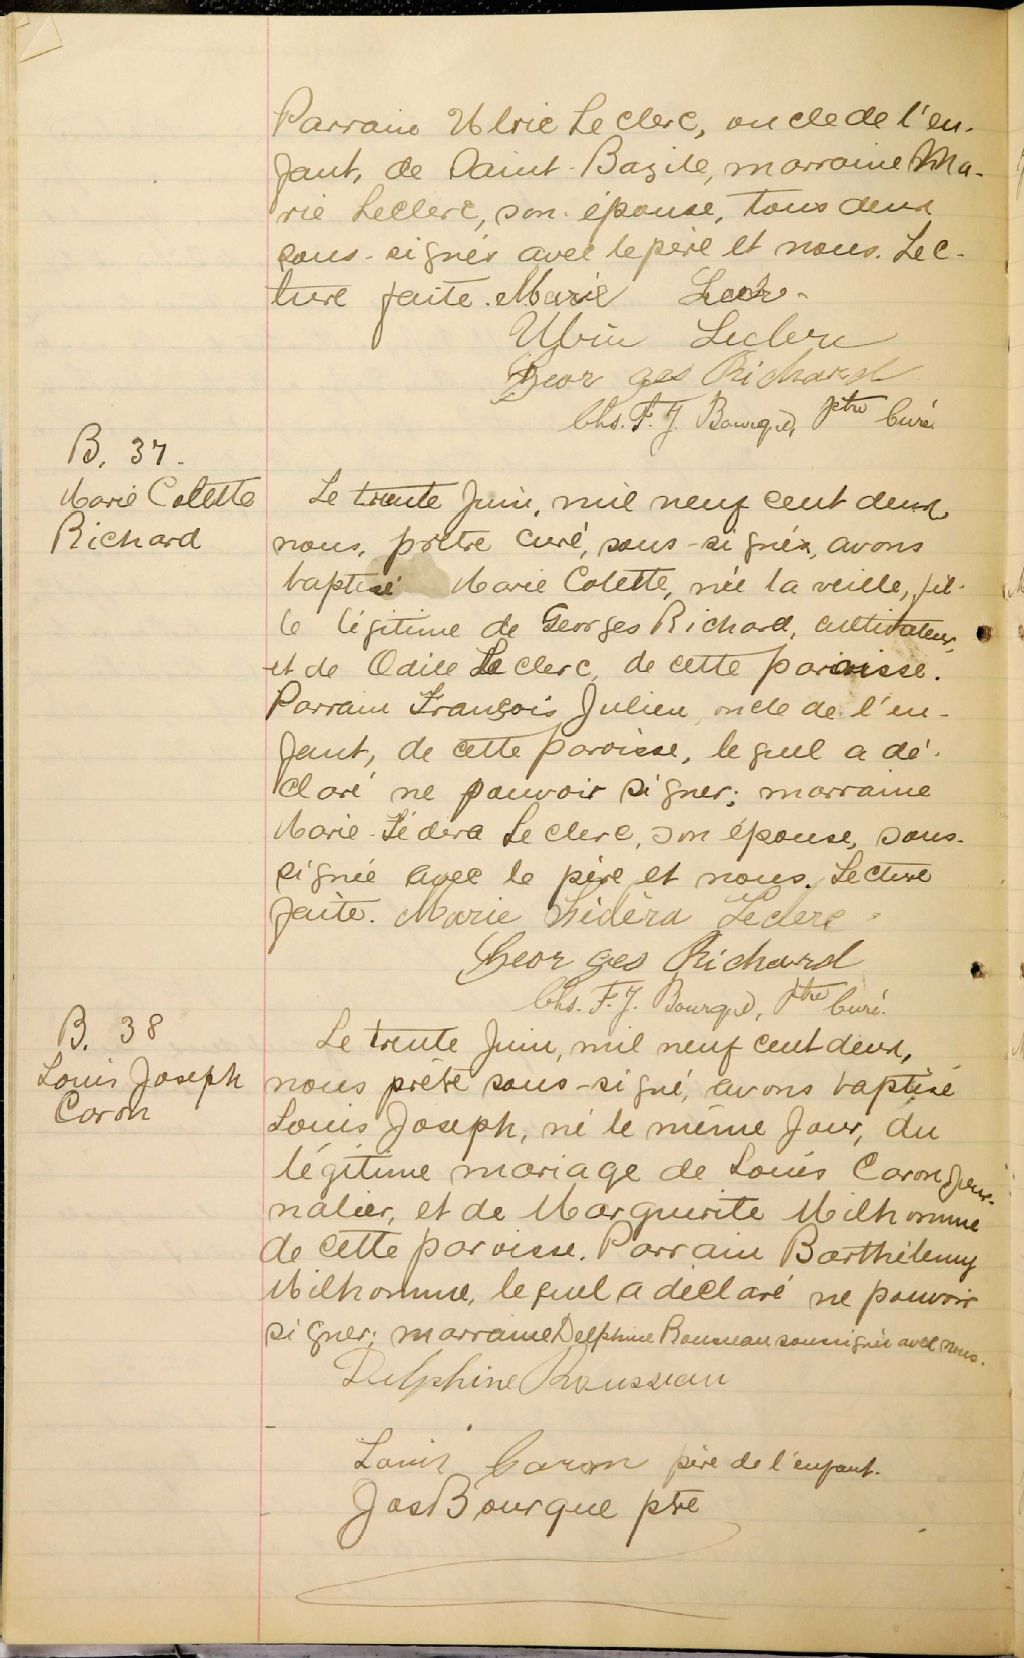 Parrain Ulric Leclerc, oncle de l'en-
fant, de Saint-Bazile, marraine Ma-
rie Leclerc, son épouse, tous deux
sous-signés avec le père et nous. Lec-
ture faite. Marie
Ulric Leclerc
Georges Richard
Chs. F. J. Bourque, Ptre Curé.
B. 37.
Marie Colette
Richard
Le trente Juin, mil neuf cent deux,
nous, prêtre curé, sous-signé, avons
baptisé Marie Colette, née la veille, fil-
le légitime de Georges Richard, cultivateur,
et de Odile Leclerc, de cette paroisse.
Parrain François Julien, oncle de l'en-
fant, de cette paroisse, lequel a dé-
claré ne pouvoir signer; marraine
Marie-Lédéra Leclerc, son épouse, sous-
signée avec le père et nous. Lecture
faite. Marie Lédéra Leclerc
Georges Richard
Chs. F. J. Bourque, Ptre Curé.
B. 38
Louis Joseph
Caron
Le trente Juin, mil neuf cent deux,
nous prêtre sous-signé, avons baptisé
Louis Joseph, né le même jour, du
légitime mariage de Louis Caron, jour-
nalier, et de Marguerite Milhomme
de cette paroisse. Parrain Barthélemy
Milhomme, lequel a déclaré ne pouvoir
signer; marraine Delphine Rousseau soussignée avec nous.
Delphine Rousseau
Louis Caron père de l'enfant.
Jos Bourque ptre